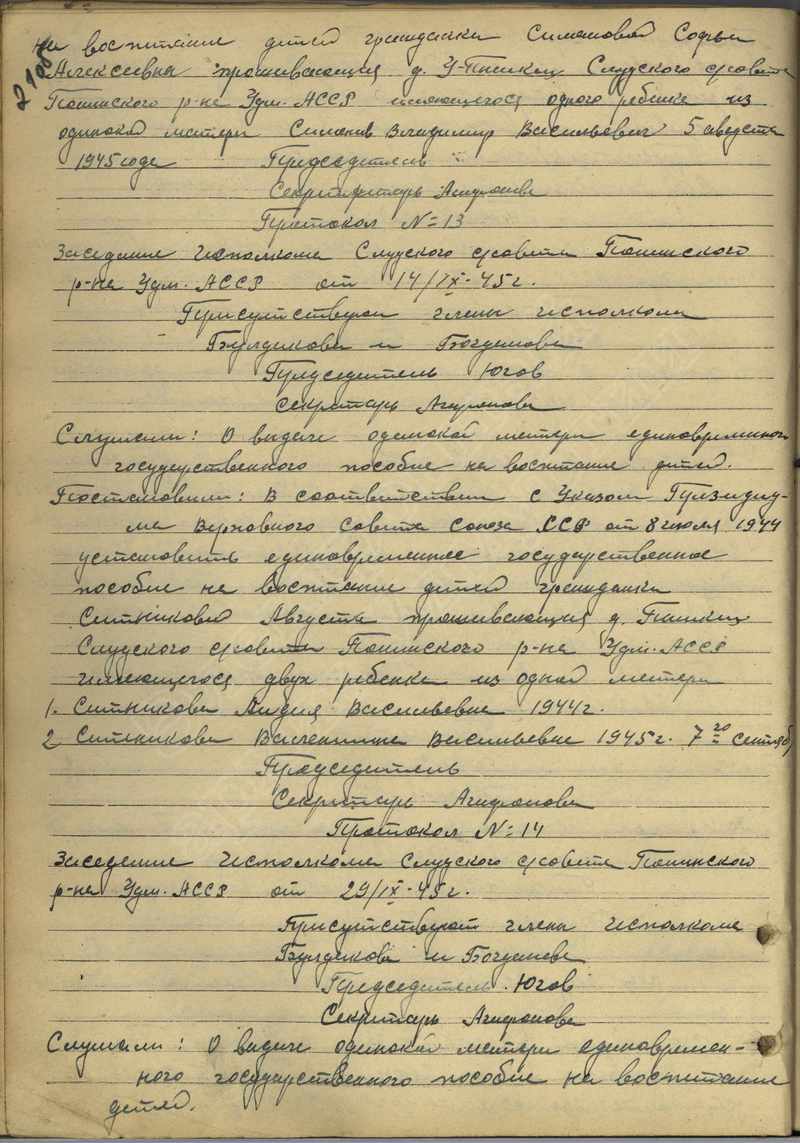 на воспитание детей гражданки Симановой Софьи
Алексеевны проживающия д. У-Пышкец Слудского с/совета
Понинского р-на Удм. АССР имеющегося одного ребенка из
одинокой матери Симанов Владимир Васильевич 5 августа
1945 года Председатель
Секретарь Агафонова
Протокол №13
Заседание Исполкома Слудского с/совета Понинского
р-на Удм. АССР от 14/IX-45г.
Присутствуют члены исполкома
Булдакова и Богданова
Председатель Югов
Секретарь Агафонова
Слушали: О выдаче одинокой матери единовременного
государственного пособие на воспитание детей.
Постановили: В соответствии с Указом Президиу-
ма Верховного Совета Союза ССР от 8 июля 1944
установить единовременное государственное
пособие на воспитание детей гражданки
Ситниковой Августа проживающия д. Пышкец
Слудского с/совета Понинского р-на Удм. АССР
имеющегося двух ребенка из одной матери
1. Ситникова Лидия Васильевна 1944г.
2 Ситникова Валентина Васильевна 1945г. 7го сентяб
Председатель
Секретарь Агафонова
Протокол №14
Заседание Исполкома Слудского с/совета Понинского
р-на Удм. АССР от 29/IX-45г.
Присутствуют члены исполкома
Булдакова и Богданова
Председатель Югов
Секретарь Агафонова
Слушали: О выдаче одинокой матери единовремен-
ного государственного пособие на воспитание
детей.